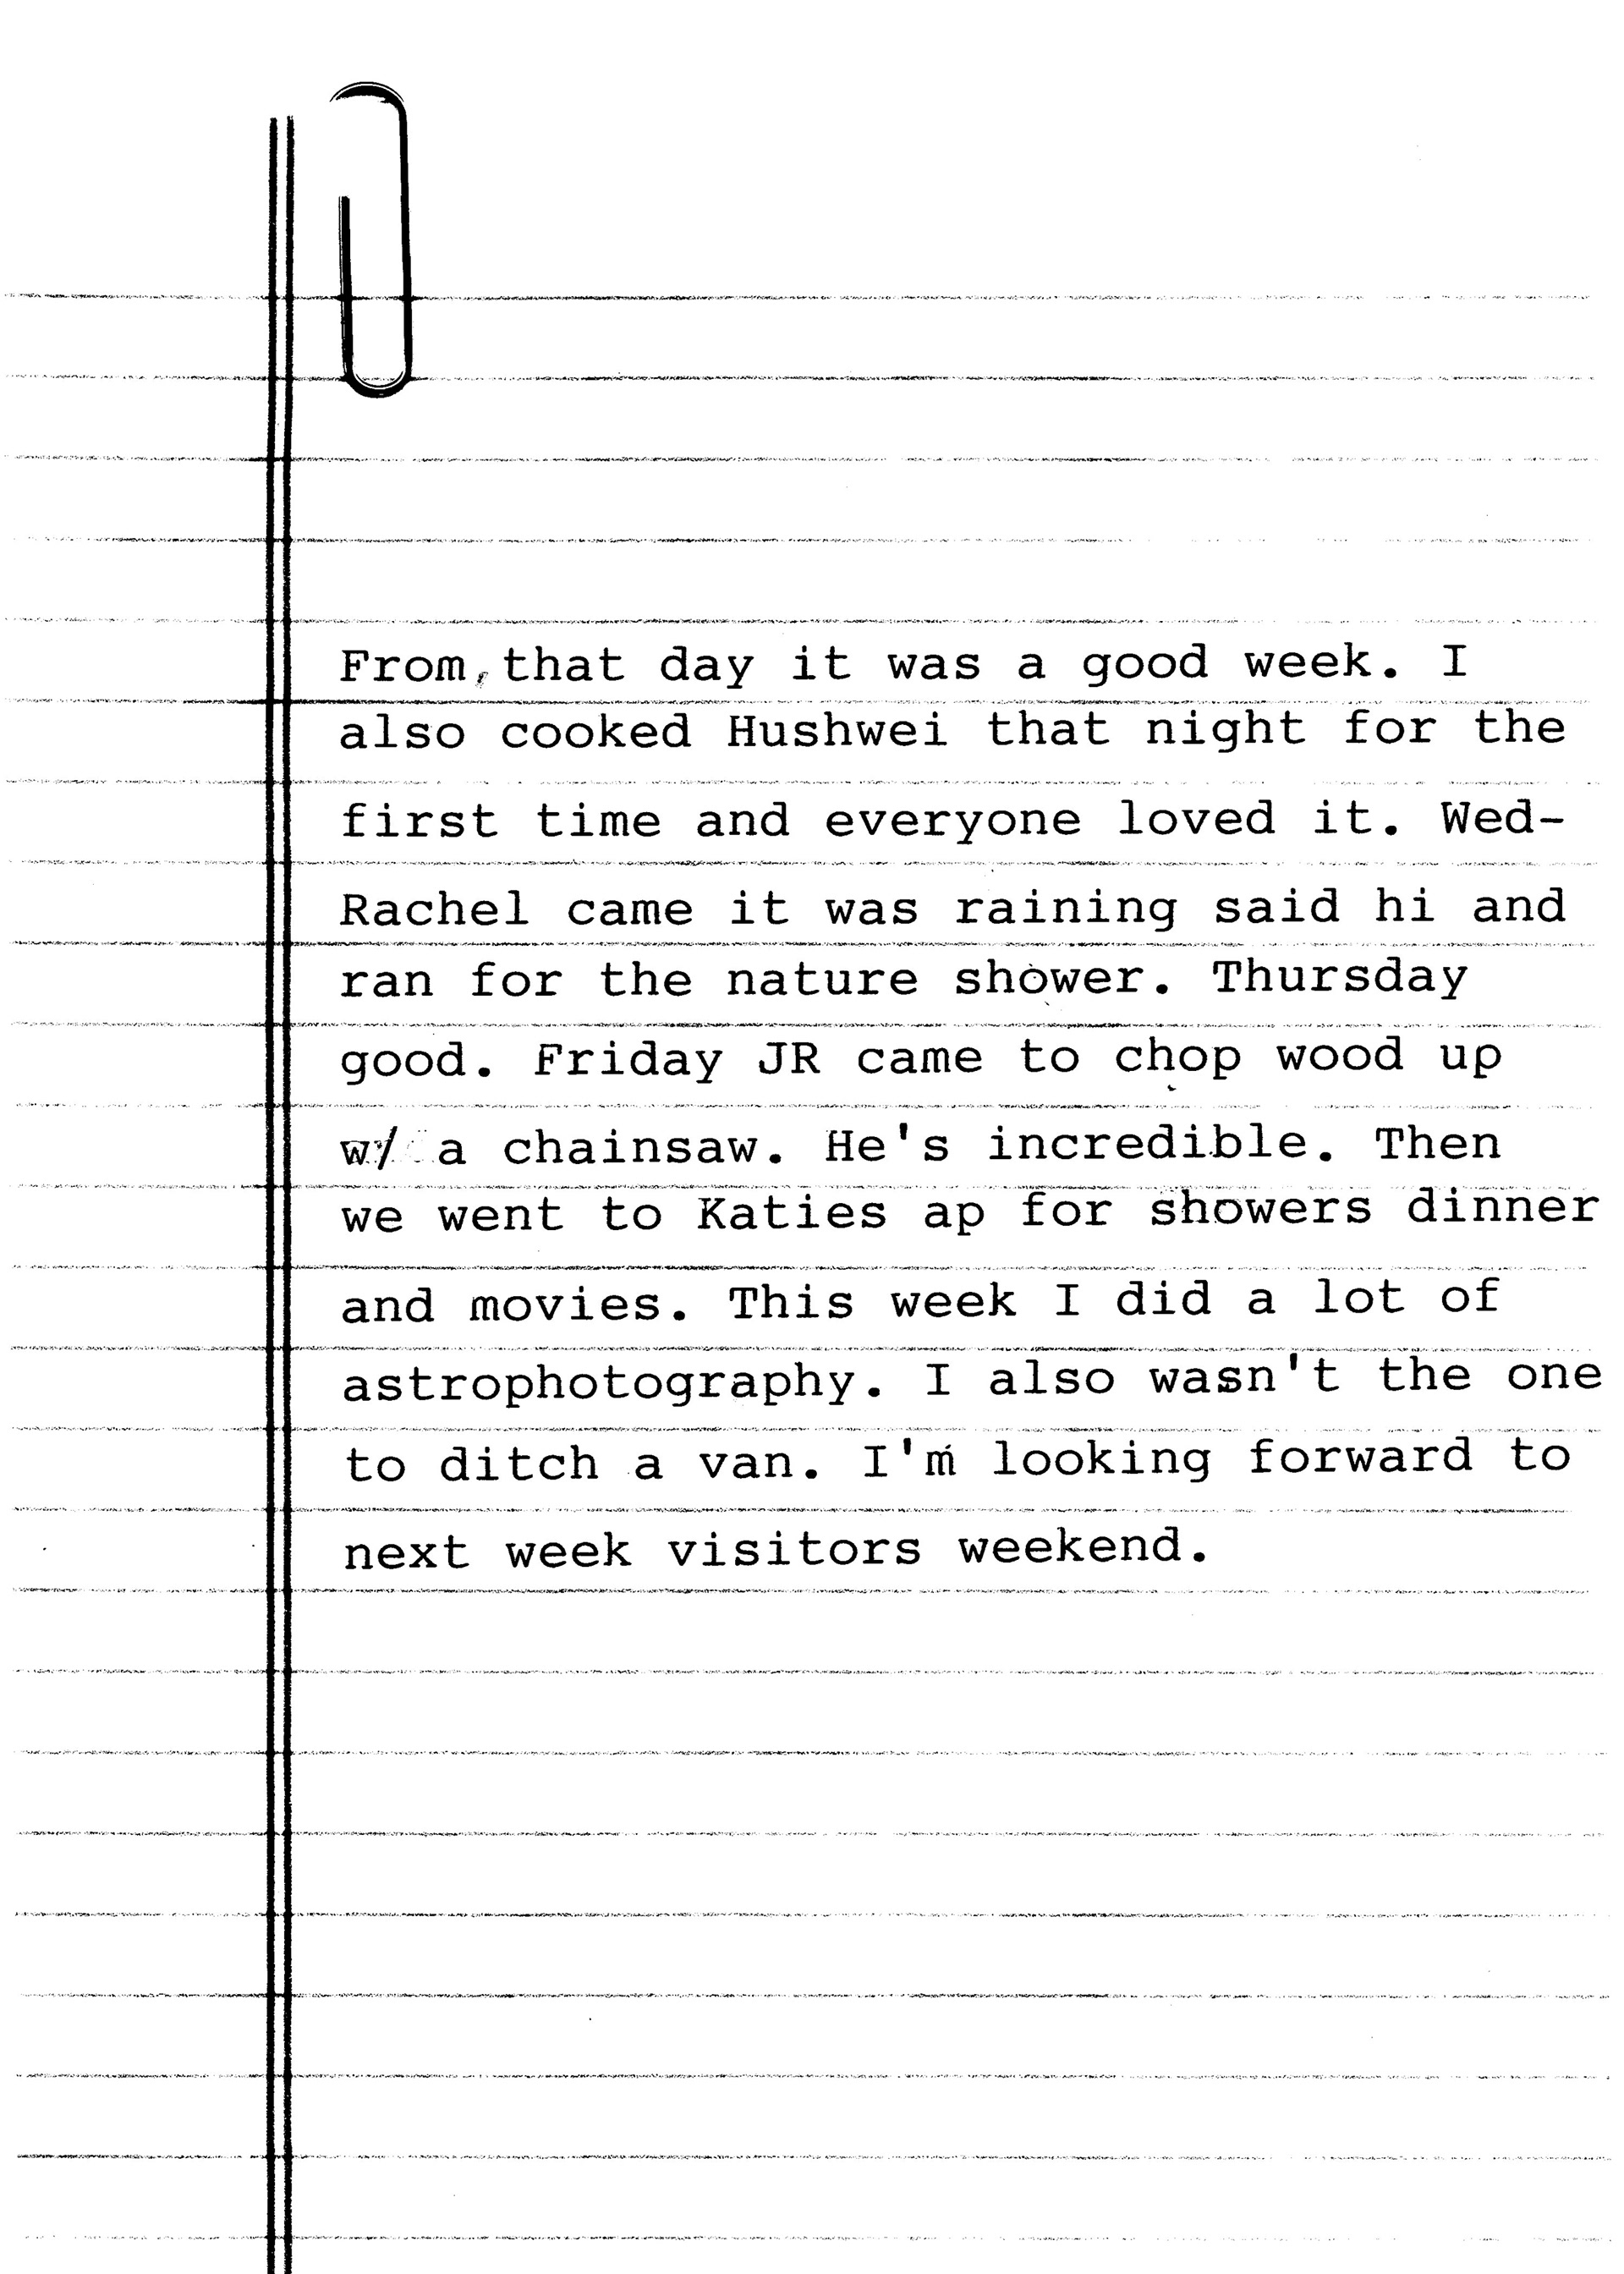 From, that day it was a good week. I
also cooked Hushwei that night for the
first time and everyone loved it. Wed-
Rachel came it was raining said hi and
ran for the nature shower. Thursday
good. Friday JR came to chop wood up
w/ a chainsaw. He's incredible. Then
we went to Katies ap for showers dinner
and movies. This week I did a lot of
astrophotography. I also wasn't the one
to ditch a van. I'm looking forward to
next week visitors weekend.